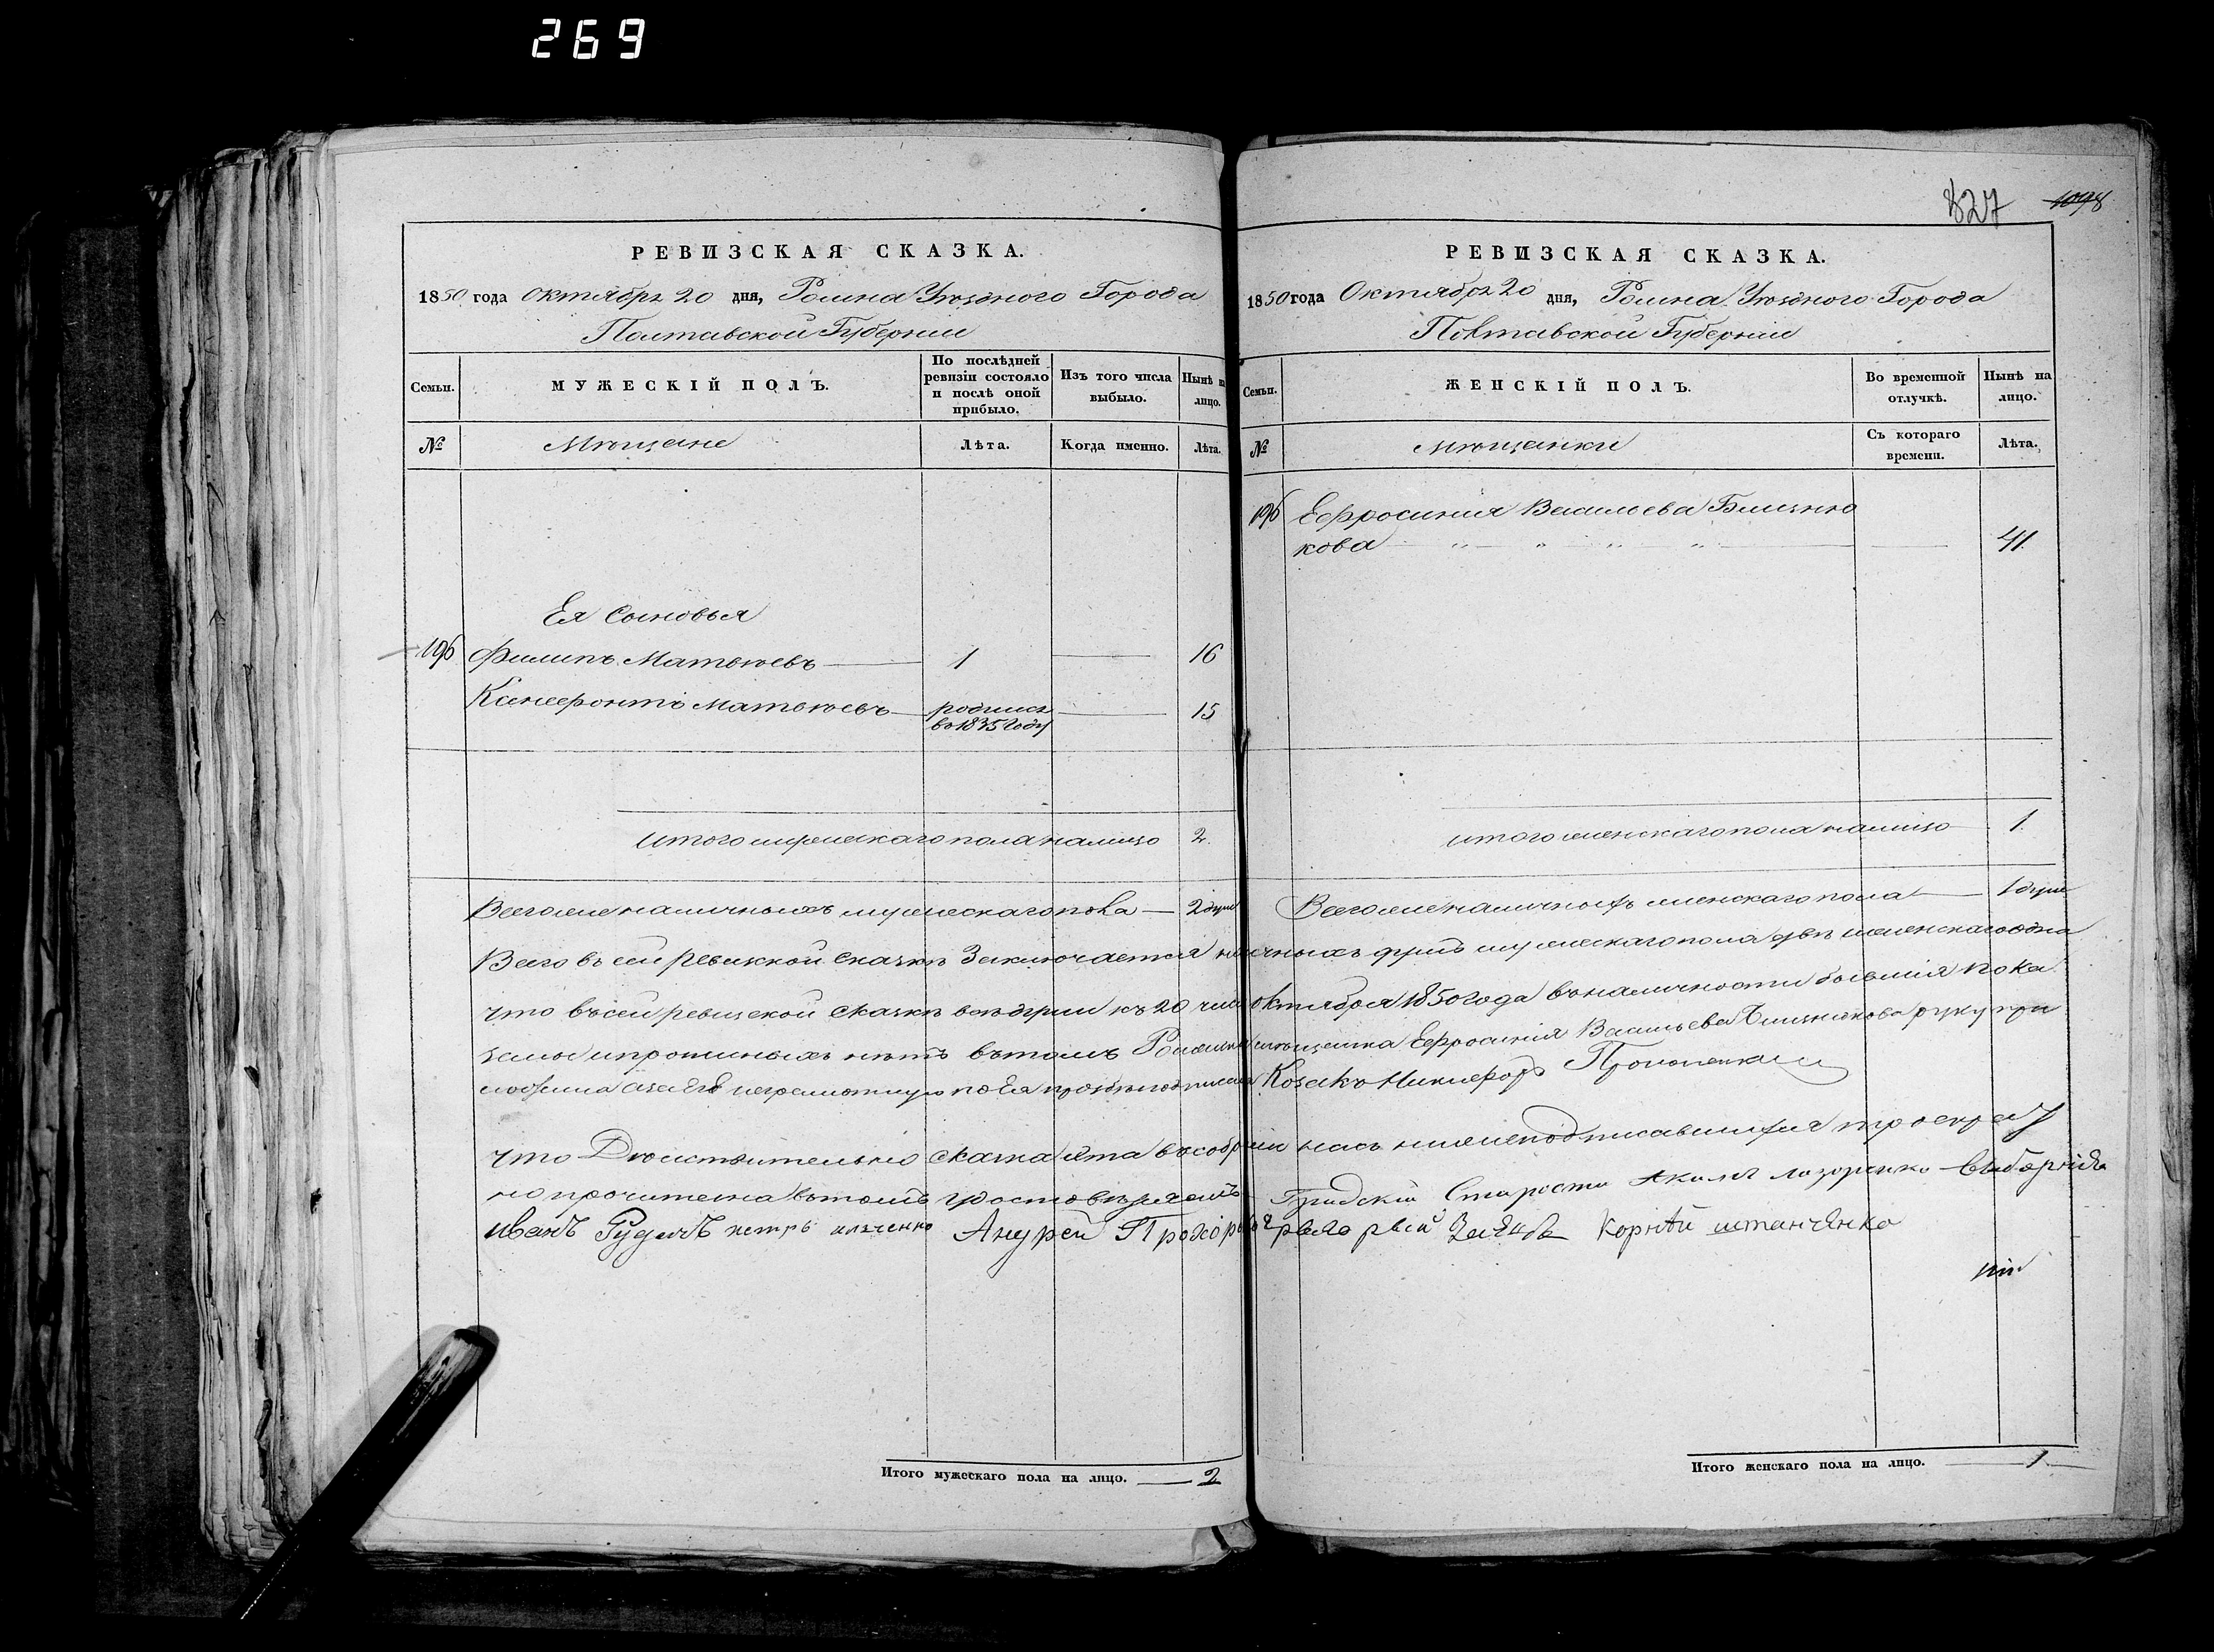 269
827 1098
РЕВИЗСКАЯ СКАЗКА.
1850 года Октября 20 дня, Ромна Уѣзднаго Города
Полтавской Губерніи
Семьи.
МУЖЕСКІЙ ПОЛЪ.
По послѣдней ревизіи состояло и послѣ оной прибыло.
Изъ того числа выбыло.
Нынѣ на лицо.
№
Мѣщане
Лѣта.
Когда именно.
Лѣта.
Ея Сыновья
196 Филипъ Матвѣевъ 1 16
Ксенефонтъ Матвѣевъ родился во 1835 году 15
итого мужескаго пола налицо 2.
Всего же наличныхъ мужескаго пола 2 души
РЕВИЗСКАЯ СКАЗКА.
1850 года Октября 20 дня, Ромна Уѣзднаго Города
Полтавской Губерніи
Семьи.
ЖЕНСКІЙ ПОЛЪ.
Во временной отлучкѣ.
Нынѣ на лицо.
№
мѣщанки
Съ котораго времени.
Лѣта.
196 Ефросинія Васильева Близню
кова 41.
итого женскаго пола налицо 1.
Всего же наличныхъ женскаго пола 1 душа
Всего въ сей ревизкой сказкѣ Заключается душъ мужескаго пола двѣ женскаго одна
что въ сей ревизской сказкѣ всѣ души къ 20 числу октября 1850 года въ наличности бывшія пока
заны и прописныхъ нѣтъ въ томъ мѣщанка Ефросинія Васильева Близнюкова руку при
ложила а за Ея неграмотную по Ея прозбѣ подписалъ Козакъ Никифоръ
что Дѣйствительно сказка ята въ собраніи насъ нижеподписавшихся
но прочитена въ томъ удостовѣряемъ Градскій Староста Лазоренко
Иванъ Рудичъ петръ Андрей Прохор Корнѣй штанченко
Итого мужескаго пола на лицо. 2
Итого женскаго пола на лицо. 1